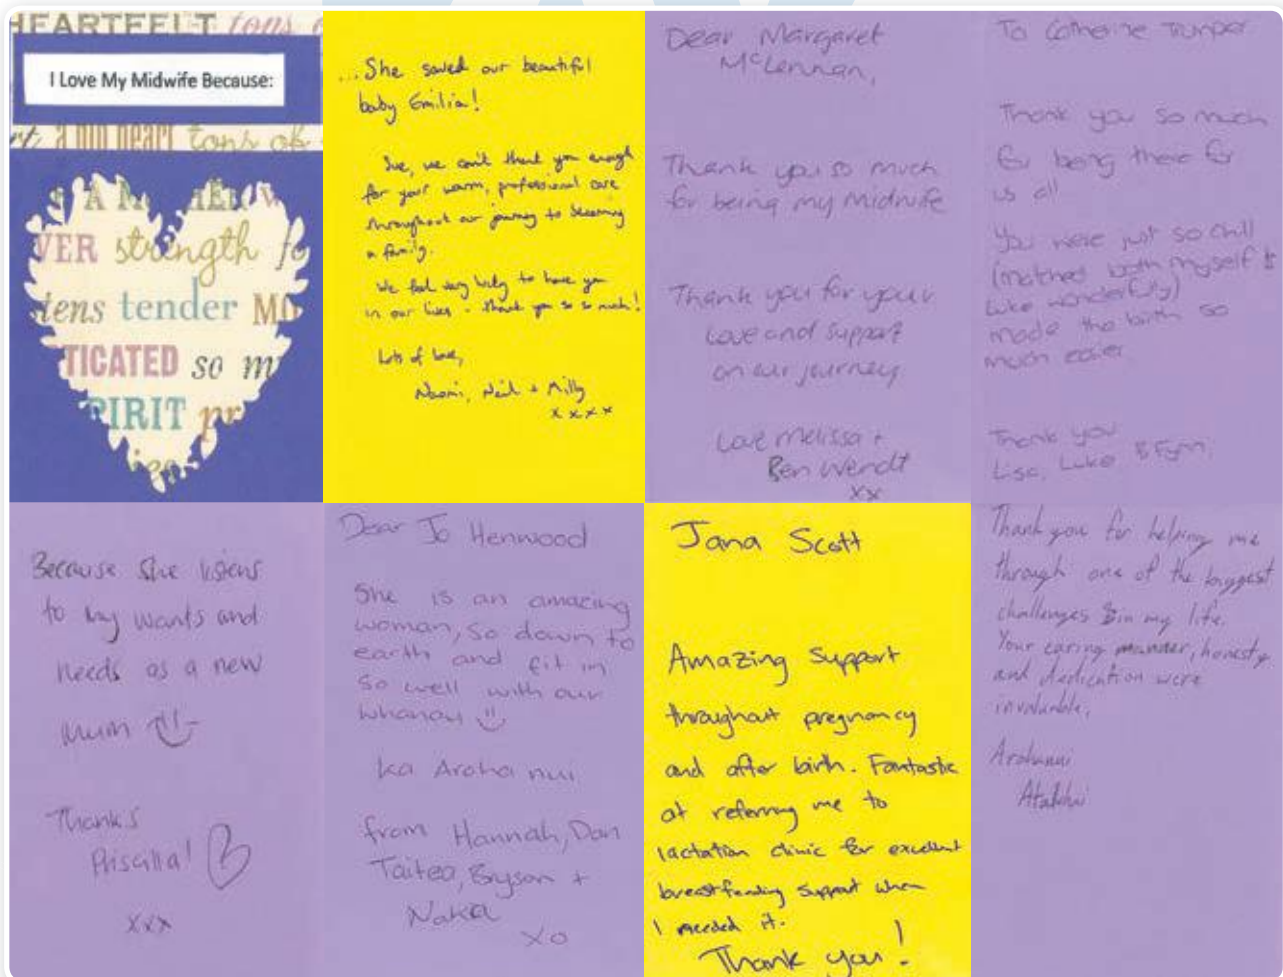 HEARTFELT tons
I Love My Midwife Because:
a big heart tons of
VER strength fo
tens tender MO
TICATED so m
PIRIT pr
...She saved our beautiful
baby Emilia!
Sue, we can't thank you enough
for your warm, professional care
throughout our journey to becoming
a family.
We feel very lucky to have you
in our lives - thank you so so much!
Lots of love,
Naomi, Neil + Milly
xxxx
Dear Margaret
McLennan,
Thank you so much
for being my midwife
Thank you for your
Love and support
on our journey
Love Melissa +
Ben Wendt
xx
To Catherine Trumper
Thank you so much
for being there for
us all
You were just so chill
(matched both myself &
Luke wonderfully)
made the birth so
much easier
Thank you
Lisa, Luke & Fynn,
Because she listens
to my wants and
needs as a new
mum
Thanks
Priscilla!
xxx
Dear Jo Henwood
She is an amazing
woman, so down to
earth and fit in
so well with our
whanau
ka Aroha nui
from Hannah, Dan
Taitea, Bryson +
Nakia
xo
Jana Scott
Amazing Support
throughout pregnancy
and after birth. Fantastic
at referring me to
lactation clinic for excellent
breastfeeding support when
I needed it.
Thank you!
Thank you for helping me
through one of the biggest
challenges in my life.
Your caring manner, honesty
and dedication were
invaluable,
Arohanui